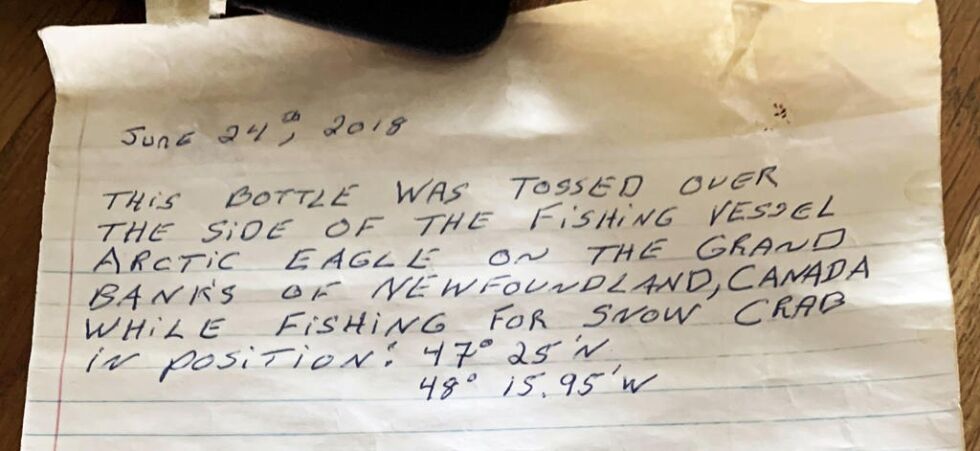 JUNE 24th, 2018
THIS BOTTLE WAS TOSSED OVER
THE SIDE OF THE FISHING VESSEL
ARCTIC EAGLE ON THE GRAND
BANKS OF NEWFOUNDLAND, CANADA
WHILE FISHING FOR SNOW CRAB
IN POSITION: 47° 25'N
48° 15.95'W